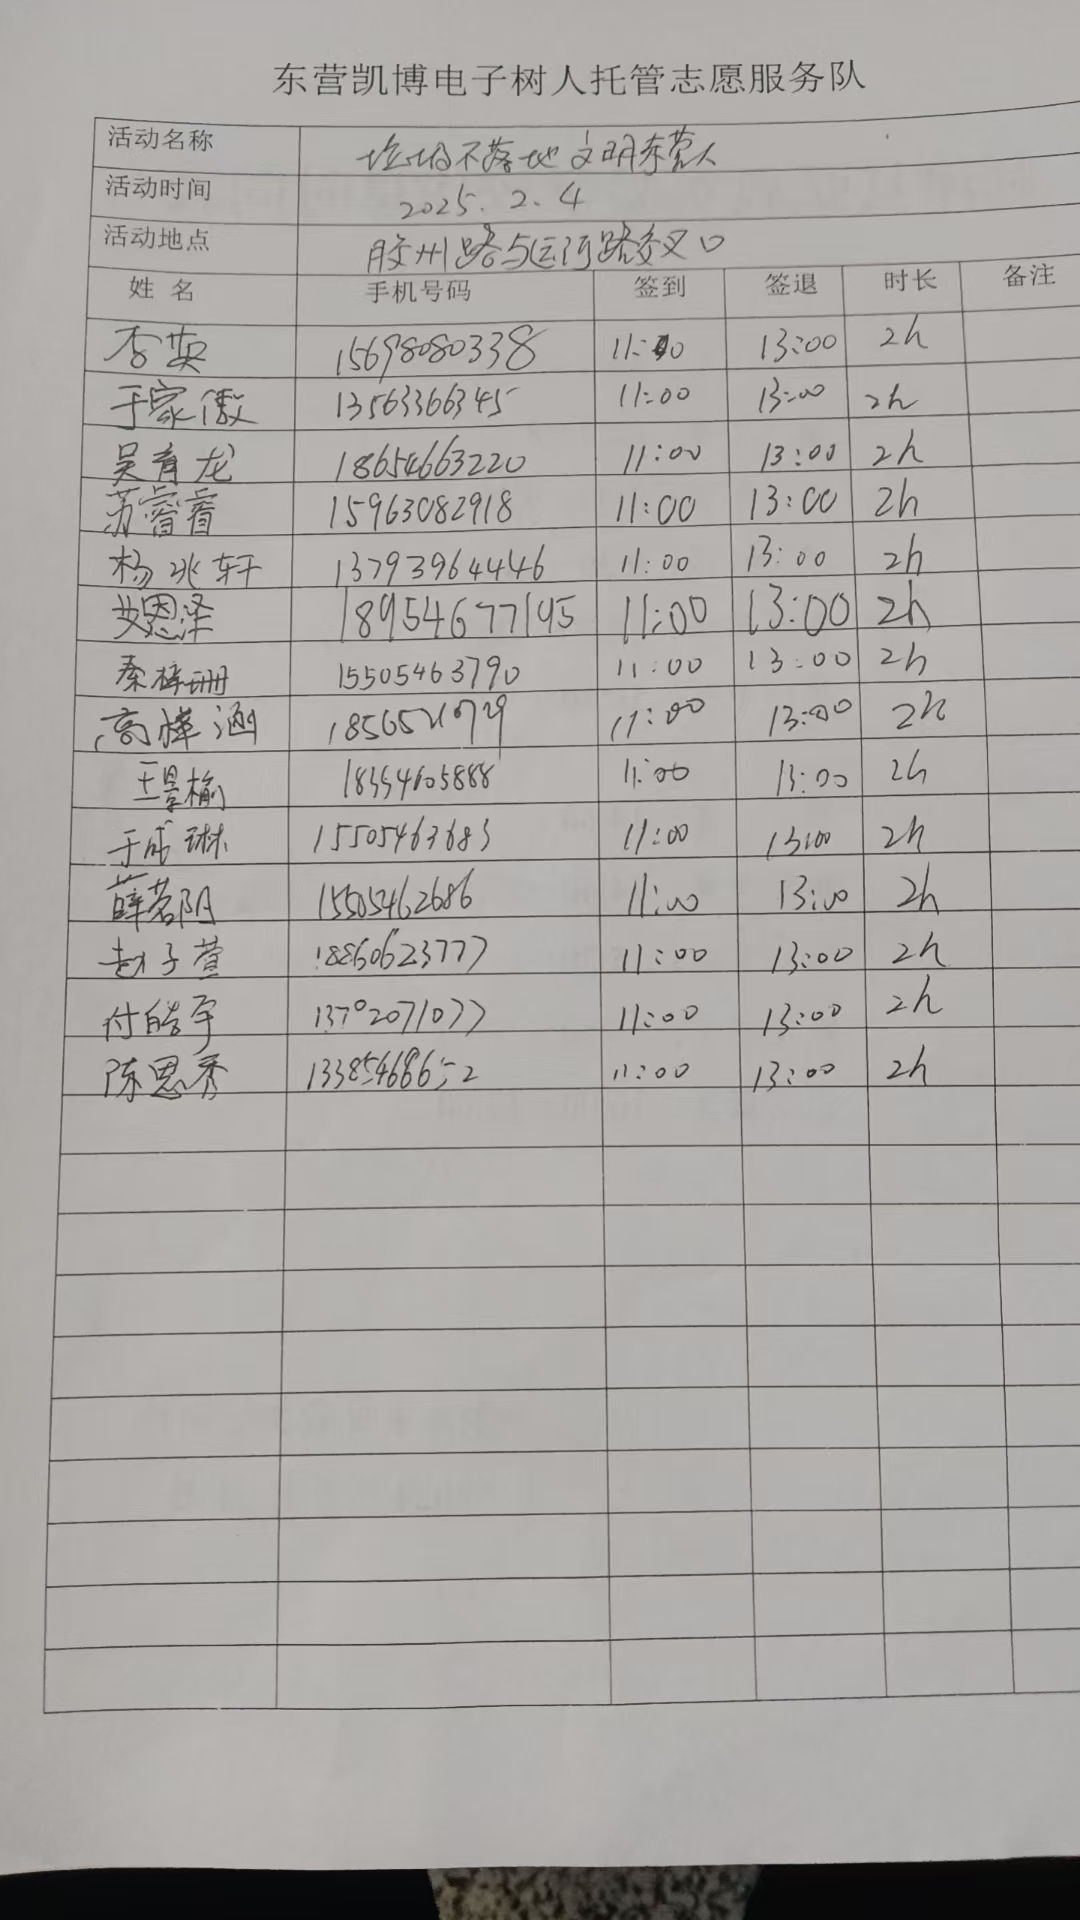 东营凯博电子树人托管志愿服务队
活动名称 垃圾不落地 文明东营人
活动时间 2025.2.4
活动地点 胶州路与运河路交叉口
姓名 手机号码 签到 签退 时长 备注
李英 15698080338 11:00 13:00 2h
于家傲 13563366345 11:00 13:00 2h
吴育龙 18654663220 11:00 13:00 2h
苏睿睿 15963082918 11:00 13:00 2h
杨兆轩 13793964446 11:00 13:00 2h
艾恩泽 18954677195 11:00 13:00 2h
秦梓珊 15505463790 11:00 13:00 2h
高梓涵 11:00 13:00 2h
王景榆 18354605888 11:00 13:00 2h
于成琳 15505463683 11:00 13:00 2h
薛茗阳 15505462686 11:00 13:00 2h
赵子萱 18860623777 11:00 13:00 2h
付皓宇 13702071077 11:00 13:00 2h
陈思秀 13385468652 11:00 13:00 2h